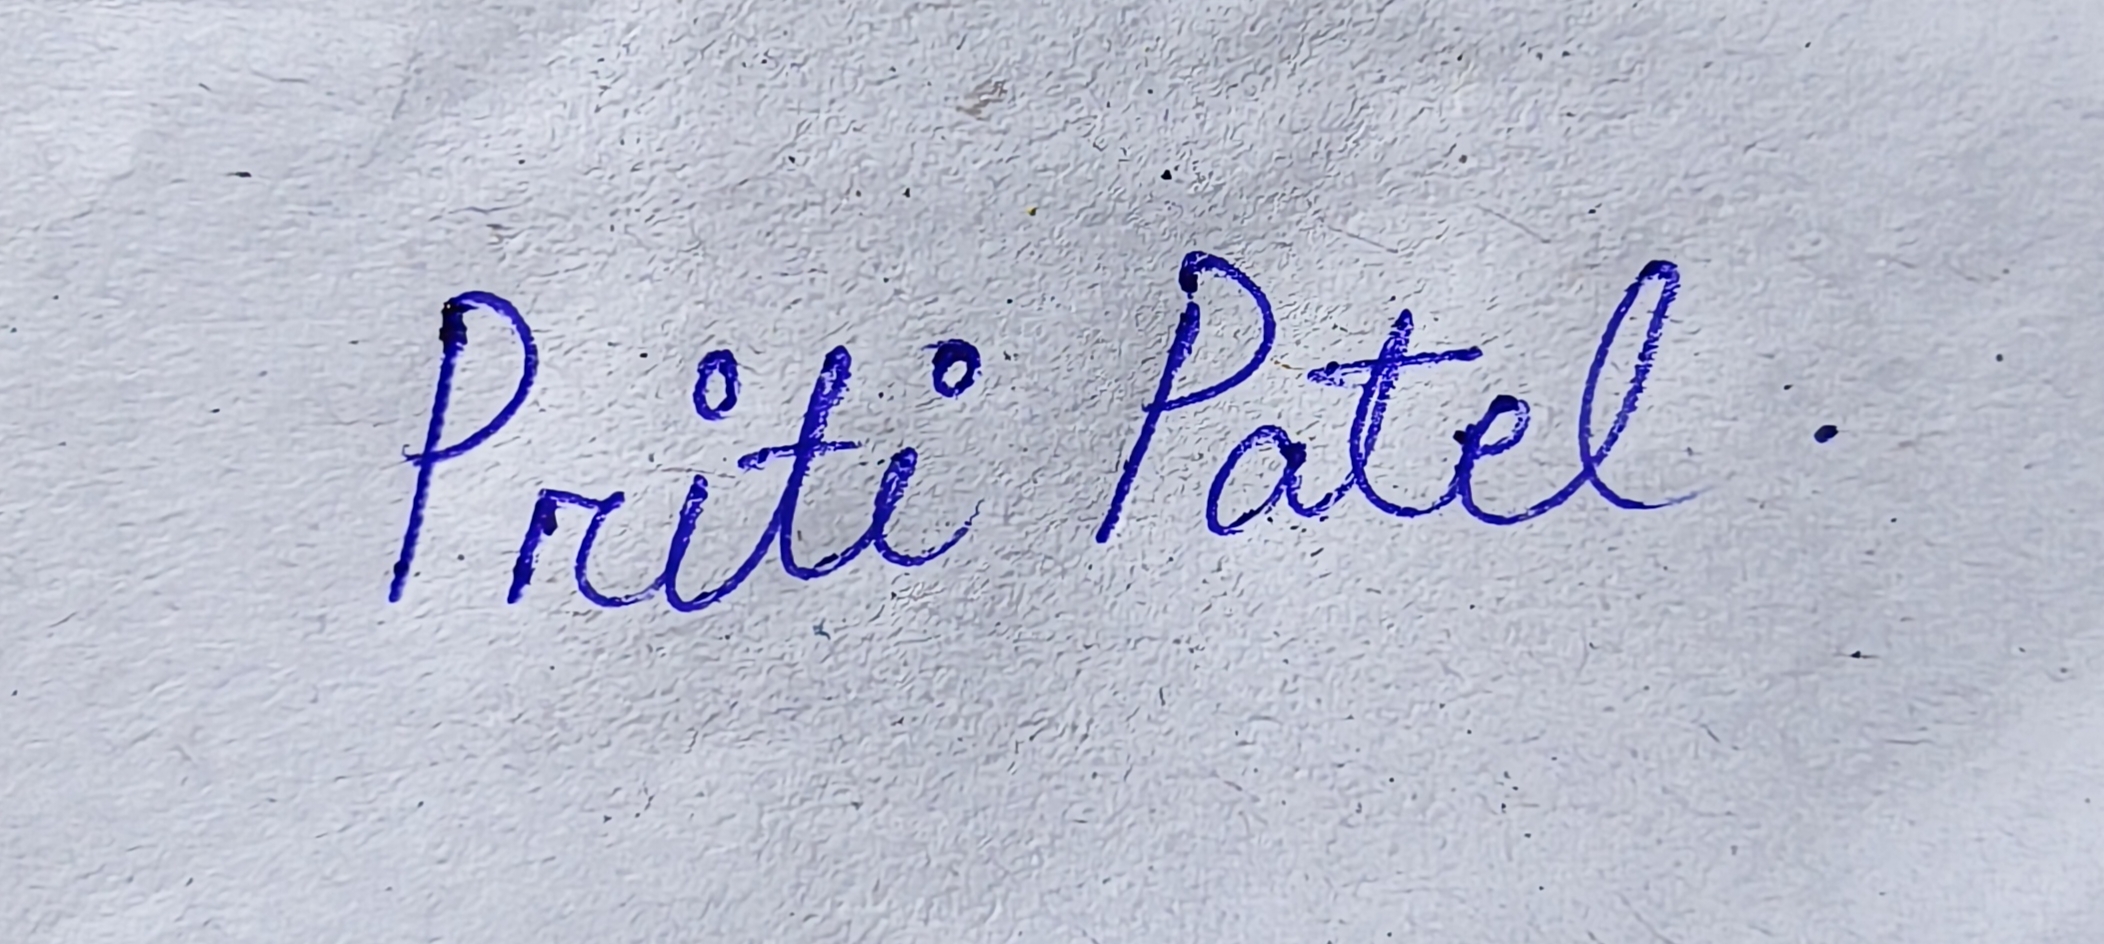 Priti Patel .